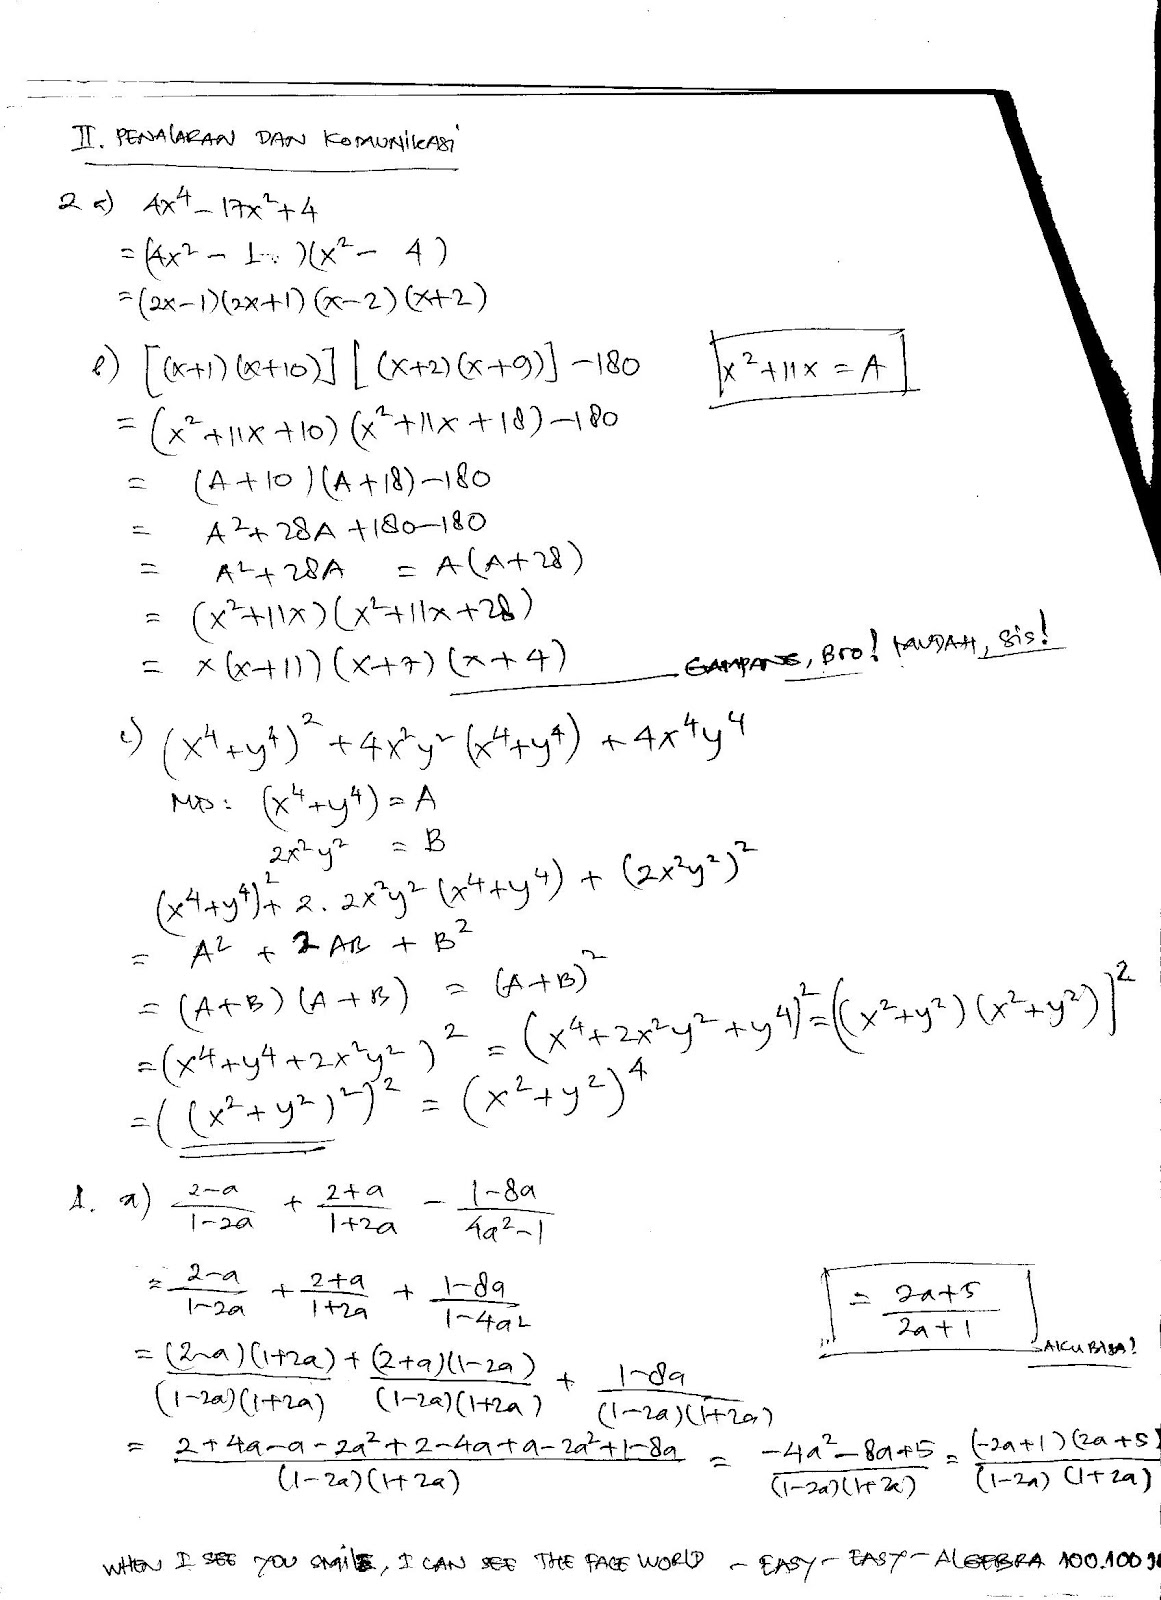 II. PENALARAN DAN KOMUNIKASI
2 a) 4x⁴ - 17x² + 4
= (4x² - 1 )(x² - 4 )
= (2x-1)(2x+1)(x-2)(x+2)
b) [(x+1)(x+10)] [(x+2)(x+9)] - 180
x² + 11x = A
= (x² + 11x + 10)(x² + 11x + 18) - 180
= (A+10)(A+18) - 180
= A² + 28A + 180 - 180
= A² + 28A = A(A+28)
= (x² + 11x)(x² + 11x + 28)
= x(x+11)(x+7)(x+4)
GAMPANG, Bro! MUDAH, Sis!
c) (x⁴+y⁴)² + 4x²y²(x⁴+y⁴) + 4x⁴y⁴
(x⁴+y⁴) = A
2x²y² = B
(x⁴+y⁴)² + 2. 2x²y²(x⁴+y⁴) + (2x²y²)²
= A² + 2AB + B²
= (A+B)(A+B) = (A+B)²
= (x⁴+y⁴+2x²y²)² = (x⁴+2x²y²+y⁴)² = ((x²+y²)(x²+y²)]²
= ((x²+y²)²)² = (x²+y²)⁴
1. a) (2-a)/(1-2a) + (2+a)/(1+2a) - (1-8a)/(4a²-1)
= (2-a)/(1-2a) + (2+a)/(1+2a) + (1-8a)/(1-4a²)
= (2a+5)/(2a+1)
AKU BISA!
= (2-a)(1+2a)/(1-2a)(1+2a) + (2+a)(1-2a)/(1-2a)(1+2a) + (1-8a)/(1-2a)(1+2a)
= (2+4a-a-2a²+2-4a+a-2a²+1-8a)/(1-2a)(1+2a) = (-4a²-8a+5)/(1-2a)(1+2a) = (-2a+1)(2a+5)/(1-2a)(1+2a)
WHEN I SEE YOU SMILE, I CAN SEE THE FACE WORLD - EASY - EASY - ALGEBRA